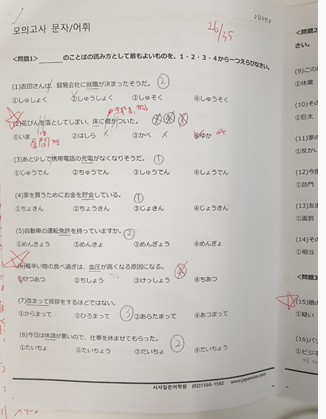 모의고사 문자/어휘
26/35
<問題1> ______のことばの読み方として最もよいものを、1・2・3・4から一つえらびなさい。
(1)志田さんは、貿易会社に就職が決まったそうだ。 ②
①しゅしょく ②しゅうしょく ③しゅそく ④しゅうそく
(2)花びんを落としてしまい、床に傷がついた。
①いま ②はしら ③かべ ④ゆか
(3)あと少しで携帯電話の充電がなくなりそうだ。 ①
①じゅうでん ②ちゅうでん ③しゅうでん ④しょうでん
(4)家を買うためにお金を貯金している。 ①
①ちょきん ②ちょうきん ③じょきん ④じょうきん
(5)自動車の運転免許を持っていますか。 ②
①めんきょう ②めんきょ ③めんぎょう ④めんぎょ
(6)塩辛い物の食べ過ぎは、血圧が高くなる原因になる。
①けつあつ ②ちしょう ③けっしょう ④ちあつ
(7)改まって挨拶をするほどではない。
①からまって ②ひろまって ③あらたまって ④あつまって
③
(8)今日は体調が悪いので、仕事を休ませてもらった。
①たいちょ ②たいちょう ③だいちょ ④だいちょう
②
시사일본어학원 (02)1566-1582 www.japansisa.com
<問題2>
(9)この
①休業
(10)その
①巨大
(11)家の
①反かい
(12)今度
①訪門
(13)友達
①面倒
(14)その
①相当
<問題3>
(15)娘の
①疑い
(16)パン
①ビジネ